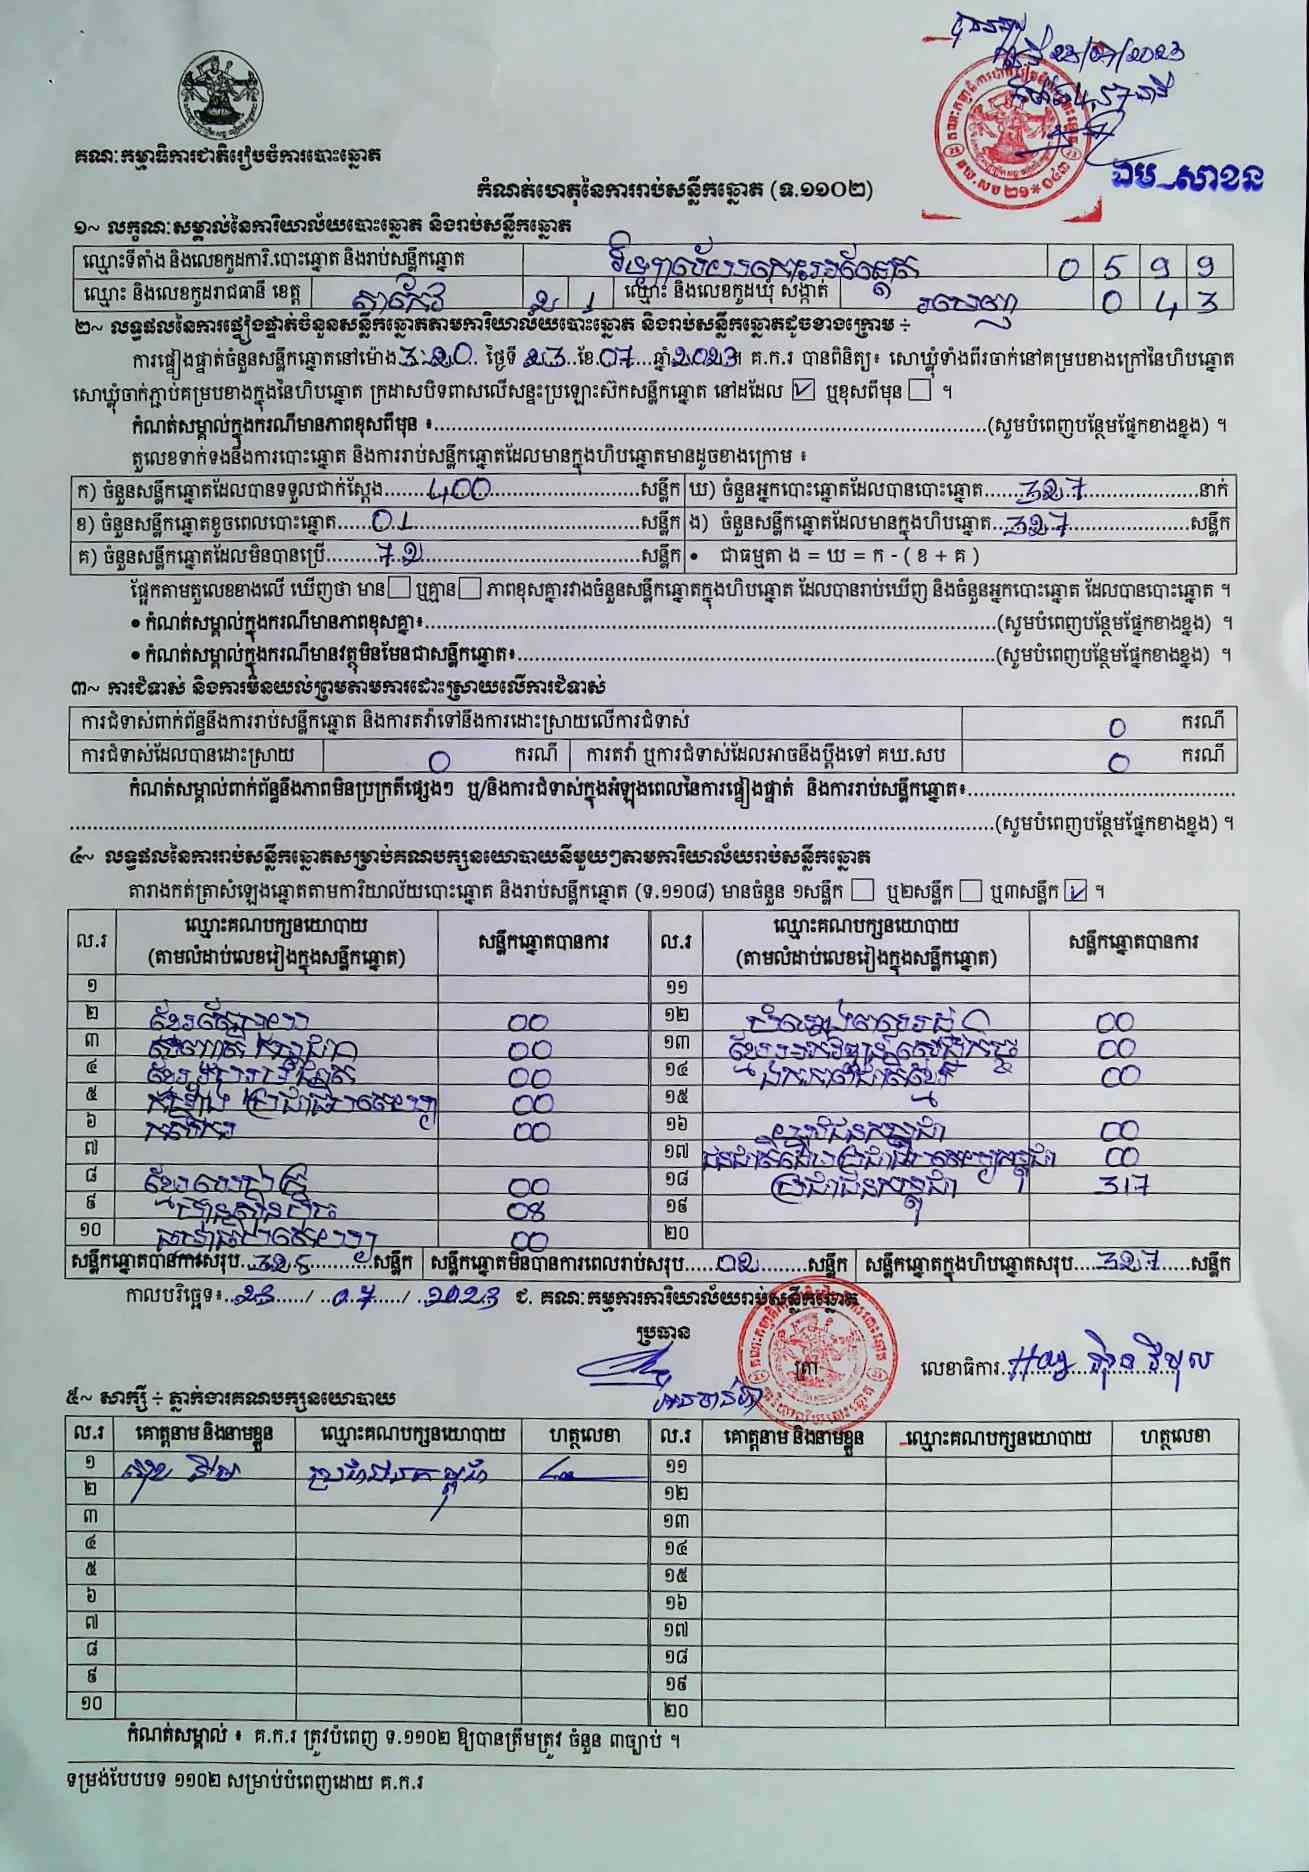 គណៈកម្មាធិការជាតិរៀបចំការបោះឆ្នោត
23/07/2023
ឯម សាខន
កំណត់ហេតុនៃការរាប់សន្លឹកឆ្នោត (ទ.១១០២)
១~ លក្ខណៈសម្គាល់នៃការិយាល័យបោះឆ្នោត និងរាប់សន្លឹកឆ្នោត
ឈ្មោះទីតាំង និងលេខកូដការិ.បោះឆ្នោត និងរាប់សន្លឹកឆ្នោត 0 5 9 9
ឈ្មោះ និងលេខកូដរាជធានី ខេត្ត តាកែវ 2 1 ឈ្មោះ និងលេខកូដឃុំ សង្កាត់ 0 4 3
២~ លទ្ធផលនៃការផ្ទៀងផ្ទាត់ចំនួនសន្លឹកឆ្នោតតាមការិយាល័យបោះឆ្នោត និងរាប់សន្លឹកឆ្នោតដូចខាងក្រោម ÷
ការផ្ទៀងផ្ទាត់ចំនួនសន្លឹកឆ្នោតនៅម៉ោង 3:20 ថ្ងៃទី 23 ខែ 07 ឆ្នាំ 2023 គ.ក.រ បានពិនិត្យ៖ សោឃ្លុំទាំងពីរចាក់នៅគម្របខាងក្រៅនៃហិបឆ្នោត
សោឃ្លុំចាក់ភ្ជាប់គម្របខាងក្នុងនៃហិបឆ្នោត ក្រដាសបិទពាសលើសន្ទះប្រឡោះស៊កសន្លឹកឆ្នោត នៅដដែល ☑ ឬខុសពីមុន ☐ ។
កំណត់សម្គាល់ក្នុងករណីមានភាពខុសពីមុន ៖ (សូមបំពេញបន្ថែមផ្នែកខាងខ្នង) ។
តួលេខទាក់ទងនឹងការបោះឆ្នោត និងការរាប់សន្លឹកឆ្នោតដែលមានក្នុងហិបឆ្នោតមានដូចខាងក្រោម ៖
ក) ចំនួនសន្លឹកឆ្នោតដែលបានទទួលជាក់ស្តែង 400 សន្លឹក ឃ) ចំនួនអ្នកបោះឆ្នោតដែលបានបោះឆ្នោត 327 នាក់
ខ) ចំនួនសន្លឹកឆ្នោតខូចពេលបោះឆ្នោត 01 សន្លឹក ង) ចំនួនសន្លឹកឆ្នោតដែលមានក្នុងហិបឆ្នោត 327 សន្លឹក
គ) ចំនួនសន្លឹកឆ្នោតដែលមិនបានប្រើ 72 សន្លឹក • ជាធម្មតា ង = ឃ = ក - ( ខ + គ )
ផ្អែកតាមតួលេខខាងលើ ឃើញថា មាន ☐ ឬគ្មាន ☐ ភាពខុសគ្នារវាងចំនួនសន្លឹកឆ្នោតក្នុងហិបឆ្នោត ដែលបានរាប់ឃើញ និងចំនួនអ្នកបោះឆ្នោត ដែលបានបោះឆ្នោត ។
• កំណត់សម្គាល់ក្នុងករណីមានភាពខុសគ្នា៖ (សូមបំពេញបន្ថែមផ្នែកខាងខ្នង) ។
• កំណត់សម្គាល់ក្នុងករណីមានវត្ថុមិនមែនជាសន្លឹកឆ្នោត៖ (សូមបំពេញបន្ថែមផ្នែកខាងខ្នង) ។
៣~ ការជំទាស់ និងការមិនយល់ព្រមតាមការដោះស្រាយលើការជំទាស់
ការជំទាស់ពាក់ព័ន្ធនឹងការរាប់សន្លឹកឆ្នោត និងការតវ៉ាទៅនឹងការដោះស្រាយលើការជំទាស់ 0 ករណី
ការជំទាស់ដែលបានដោះស្រាយ 0 ករណី ការតវ៉ា ឬការជំទាស់ដែលអាចនឹងប្តឹងទៅ គឃ.សប 0 ករណី
កំណត់សម្គាល់ពាក់ព័ន្ធនឹងភាពមិនប្រក្រតីផ្សេងៗ ឬ/និងការជំទាស់ក្នុងអំឡុងពេលនៃការផ្ទៀងផ្ទាត់ និងការរាប់សន្លឹកឆ្នោត៖
(សូមបំពេញបន្ថែមផ្នែកខាងខ្នង) ។
៤~ លទ្ធផលនៃការរាប់សន្លឹកឆ្នោតសម្រាប់គណបក្សនយោបាយនីមួយៗតាមការិយាល័យរាប់សន្លឹកឆ្នោត
តារាងកត់ត្រាសំឡេងឆ្នោតតាមការិយាល័យបោះឆ្នោត និងរាប់សន្លឹកឆ្នោត (ទ.១១០៨) មានចំនួន ១សន្លឹក ☐ ឬ២សន្លឹក ☐ ឬ៣សន្លឹក ☑ ។
ល.រ ឈ្មោះគណបក្សនយោបាយ សន្លឹកឆ្នោតបានការ ល.រ ឈ្មោះគណបក្សនយោបាយ សន្លឹកឆ្នោតបានការ
(តាមលំដាប់លេខរៀងក្នុងសន្លឹកឆ្នោត) (តាមលំដាប់លេខរៀងក្នុងសន្លឹកឆ្នោត)
១ ១១
២ 00 ១២ 00
៣ 00 ១៣ 00
៤ 00 ១៤ 00
៥ កម្លាំងប្រជាធិបតេយ្យ 00 ១៥
៦ កសិករ 00 ១៦ 00
៧ ១៧ 00
៨ 00 ១៨ ប្រជាជនកម្ពុជា 317
៩ 08 ១៩
១០ 00 ២០
សន្លឹកឆ្នោតបានការសរុប 325 សន្លឹក សន្លឹកឆ្នោតមិនបានការពេលរាប់សរុប 02 សន្លឹក សន្លឹកឆ្នោតក្នុងហិបឆ្នោតសរុប 327 សន្លឹក
កាលបរិច្ឆេទ៖ 23 / 07 / 2023 ជ. គណៈកម្មការការិយាល័យរាប់សន្លឹកឆ្នោត
ប្រធាន
ត្រា លេខាធិការ
៥~ សាក្សី ÷ ភ្នាក់ងារគណបក្សនយោបាយ
ល.រ គោត្តនាម និងនាមខ្លួន ឈ្មោះគណបក្សនយោបាយ ហត្ថលេខា ល.រ គោត្តនាម និងនាមខ្លួន ឈ្មោះគណបក្សនយោបាយ ហត្ថលេខា
១ ប្រជាជនកម្ពុជា ១១
២ ១២
៣ ១៣
៤ ១៤
៥ ១៥
៦ ១៦
៧ ១៧
៨ ១៨
៩ ១៩
១០ ២០
កំណត់សម្គាល់ ៖ គ.ក.រ ត្រូវបំពេញ ទ.១១០២ ឱ្យបានត្រឹមត្រូវ ចំនួន ៣ច្បាប់ ។
ទម្រង់បែបបទ ១១០២ សម្រាប់បំពេញដោយ គ.ក.រ